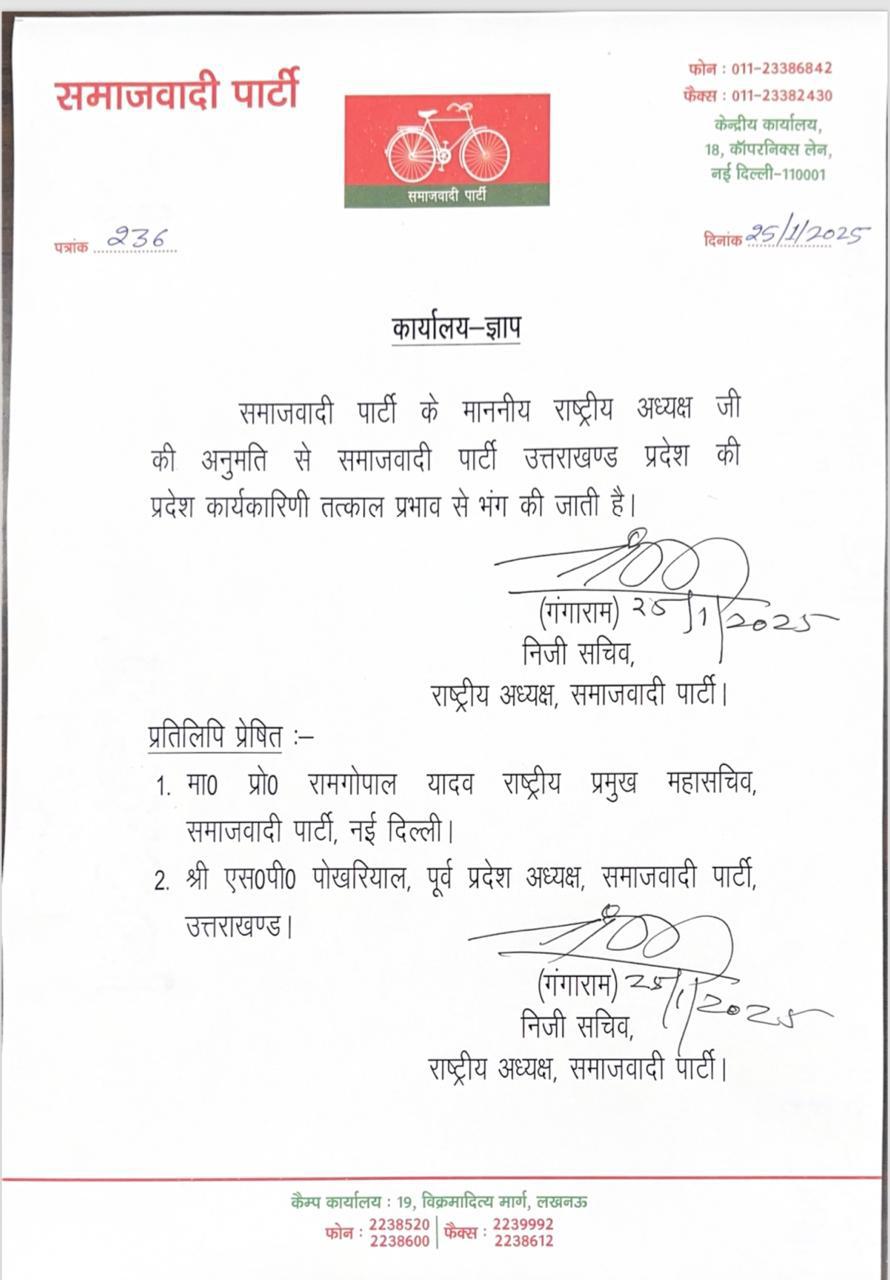 समाजवादी पार्टी
समाजवादी पार्टी
फोन : 011-23386842
फैक्स : 011-23382430
केन्द्रीय कार्यालय,
18, कॉपरनिक्स लेन,
नई दिल्ली-110001
पत्रांक 236
दिनांक 25/1/2025
कार्यालय-ज्ञाप
समाजवादी पार्टी के माननीय राष्ट्रीय अध्यक्ष जी
की अनुमति से समाजवादी पार्टी उत्तराखण्ड प्रदेश की
प्रदेश कार्यकारिणी तत्काल प्रभाव से भंग की जाती है।
(गंगाराम) 25/1/2025
निजी सचिव,
राष्ट्रीय अध्यक्ष, समाजवादी पार्टी।
प्रतिलिपि प्रेषित :-
1. मा0 प्रो0 रामगोपाल यादव राष्ट्रीय प्रमुख महासचिव,
समाजवादी पार्टी, नई दिल्ली।
2. श्री एस0पी0 पोखरियाल, पूर्व प्रदेश अध्यक्ष, समाजवादी पार्टी,
उत्तराखण्ड।
(गंगाराम) 25/1/2025
निजी सचिव,
राष्ट्रीय अध्यक्ष, समाजवादी पार्टी।
कैम्प कार्यालय : 19, विक्रमादित्य मार्ग, लखनऊ
फोन : 2238520 2238600 फैक्स : 2239992 2238612